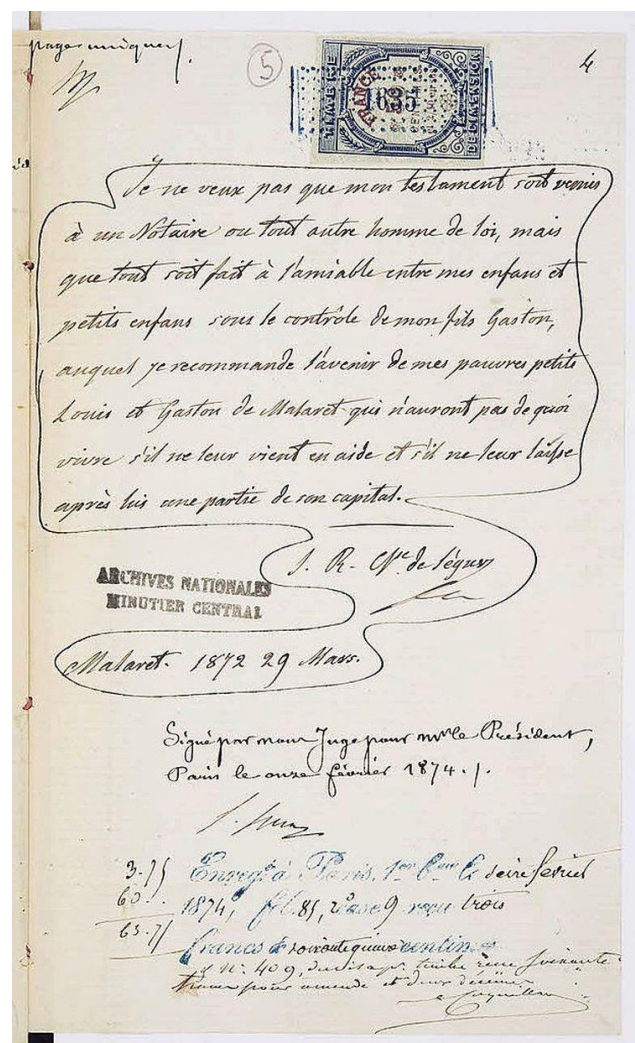 page unique
5
4
TIMBRE DE
DIMENSION
FRANCE
1635
Je ne veux pas que mon testament soit remis
à un Notaire ou tout autre homme de loi, mais
que tout soit fait à l'amiable entre mes enfans et
petits enfans sous le contrôle de mon fils Gaston,
auquel je recommande l'avenir de mes pauvres petits
Louis et Gaston de Malaret qui n'auront pas de quoi
vivre s'il ne leur vient en aide et s'il ne leur laisse
après lui une partie de son capital.
S. R. Ctesse de Ségur
ARCHIVES NATIONALES
MINUTIER CENTRAL
Malaret. 1872 29 Mars.
Signé par nous Juge pour Mr le Président,
Paris le onze février 1874.
3.75
60
63.75
Enregé à Paris, 1er Beau le seize février
1874, fol. 85, case 9 reçu trois
francs soixante quinze centimes